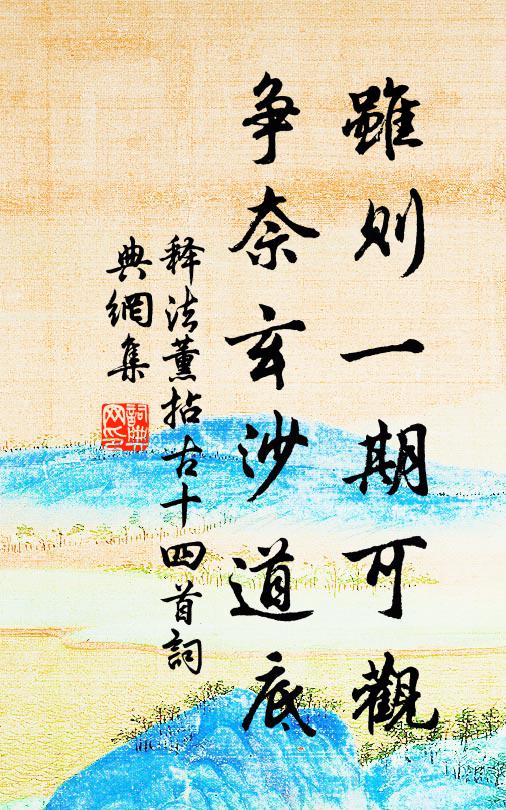 雖则一期可觀
争奈玄沙道底
释法薰拈古十四首詞
典網集
詞典網印